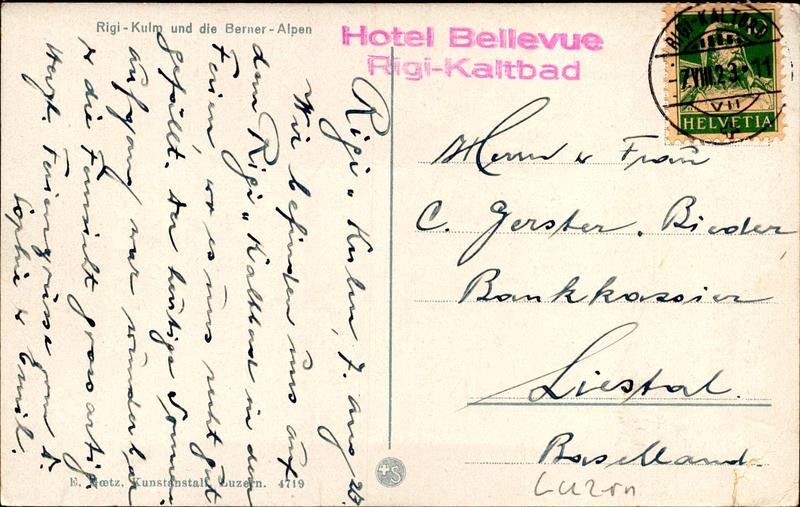 Rigi-Kulm und die Berner-Alpen
Hotel Bellevue
Rigi-Kaltbad
RIGI-KALTBAD
7.VIII.23. 11
VII
HELVETIA
Rigi-Kulm, 7. Aug 23.
Wir befinden uns auf
dem Rigi-Kaltbad in den
Ferien, wo es uns recht gut
gefällt. Der heutige Sonnen
aufgang war wunderbar
& die Fernsicht grossartig.
Herzl. Feriengrüsse von
Sophie & Emil.
Herrn & Frau
C. Gerster-Bieder
Bankkassier
Liestal.
Baselland.
Luzern
E. Goetz, Kunstanstalt, Luzern. 4719